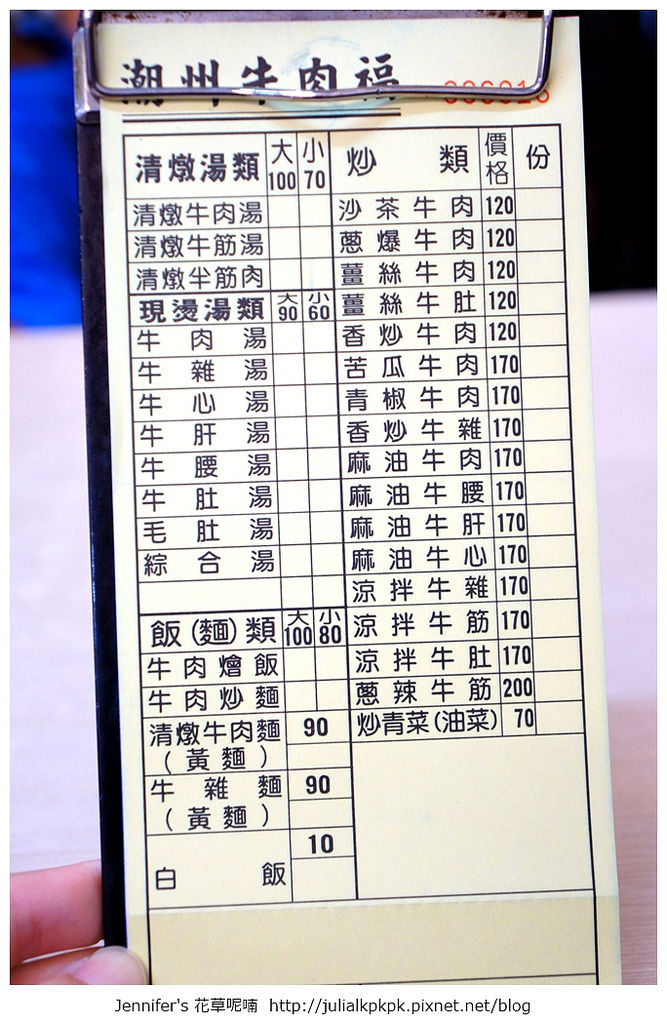 潮州牛肉福
000013
清燉湯類 大100 小70
清燉牛肉湯
清燉牛筋湯
清燉半筋肉
現燙湯類 大90 小60
牛肉湯
牛雜湯
牛心湯
牛肝湯
牛腰湯
牛肚湯
毛肚湯
綜合湯
飯(麵)類 大100 小80
牛肉燴飯
牛肉炒麵
清燉牛肉麵(黃麵) 90
牛雜麵(黃麵) 90
白飯 10
炒類 價格 份
沙茶牛肉 120
蔥爆牛肉 120
薑絲牛肉 120
薑絲牛肚 120
香炒牛肉 120
苦瓜牛肉 170
青椒牛肉 170
香炒牛雜 170
麻油牛肉 170
麻油牛腰 170
麻油牛肝 170
麻油牛心 170
涼拌牛雜 170
涼拌牛筋 170
涼拌牛肚 170
蔥辣牛筋 200
炒青菜(油菜) 70
Jennifer's 花草呢喃 http://julialkpkpk.pixnet.net/blog